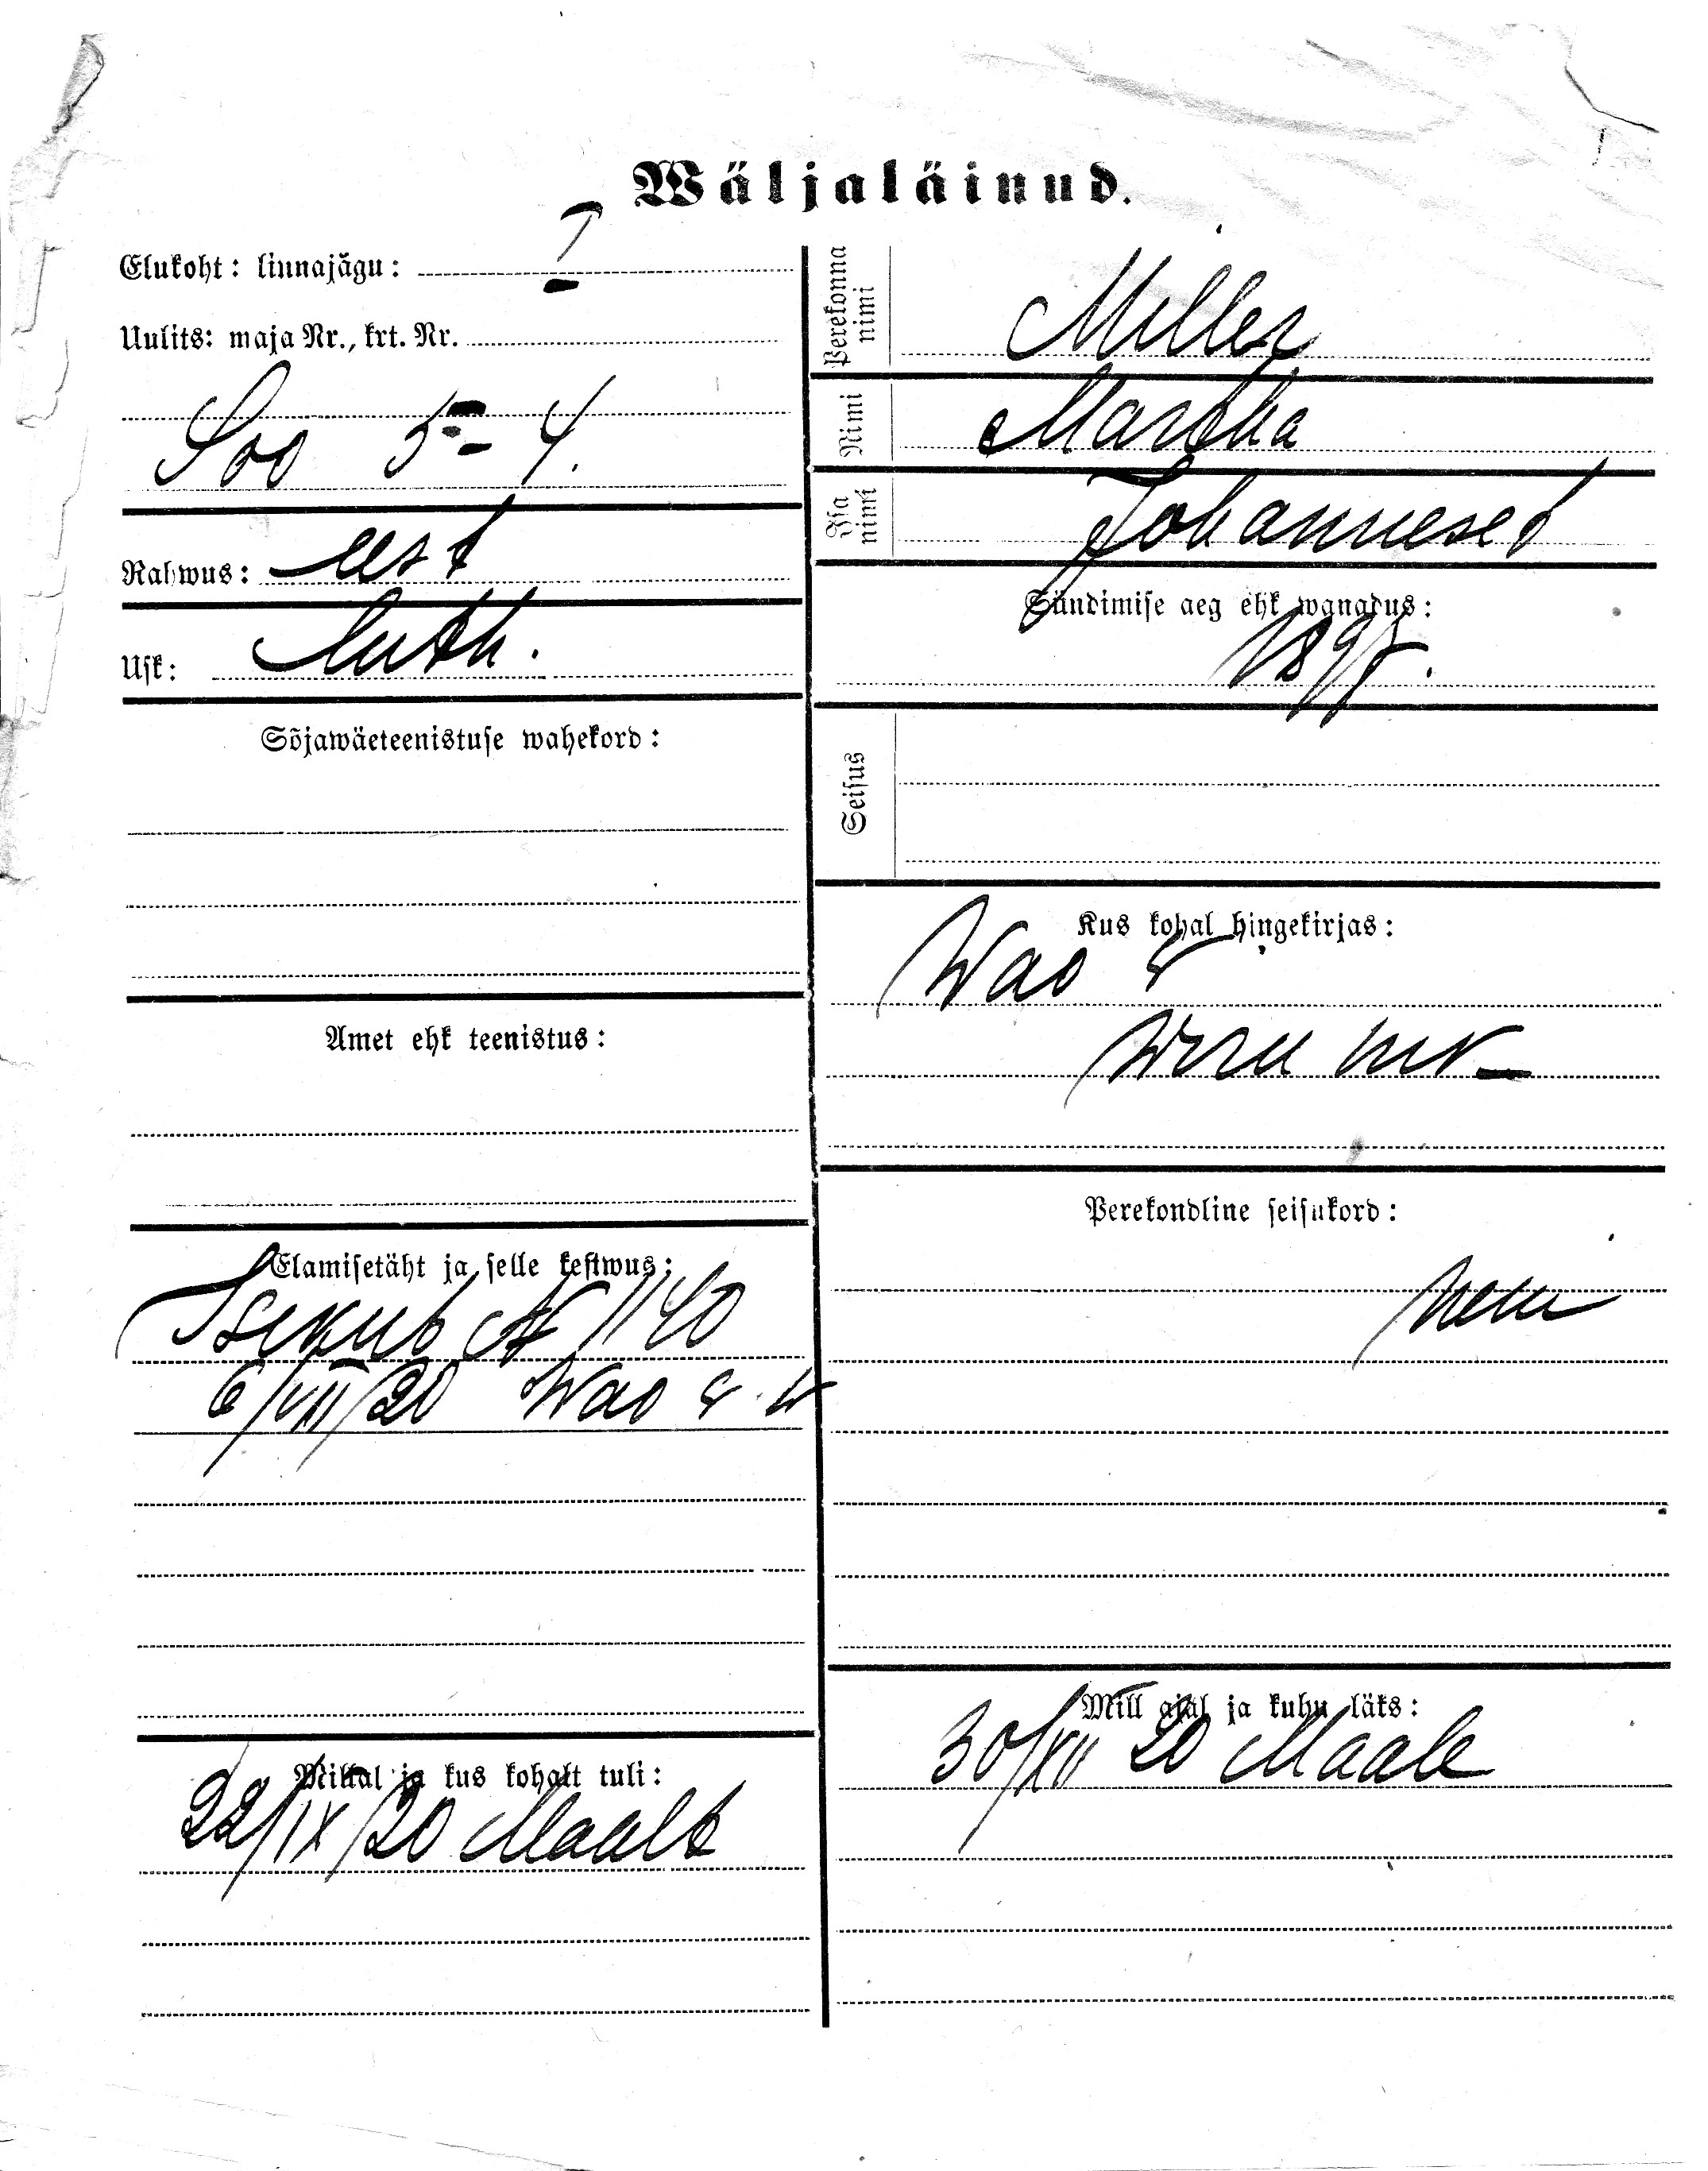 Wäljaläinud.
Elukoht: linnajägu: I
Uulits: maja Nr., krt. Nr.
Soo 5 - 4.
Rahwus: eest
Usk: luth.
Sõjawäeteenistuse wahekord:
Amet ehk teenistus:
Elamisetäht ja selle kestwus:
Isikut № 1140
6/VII/20 Wao w
Millal ja kus kohalt tuli:
22/IX/20 Maalt
Perekonna nimi Miller
Nimi Martha
Isa nimi Johannese t
Sündimise aeg ehk wanadus:
1897.
Seisus
Kus kohal hingekirjas:
Wao
Woru mk
Perekondline seisukord:
neiu
Mill ajal ja kuhu läks:
30/XII 20 Maale